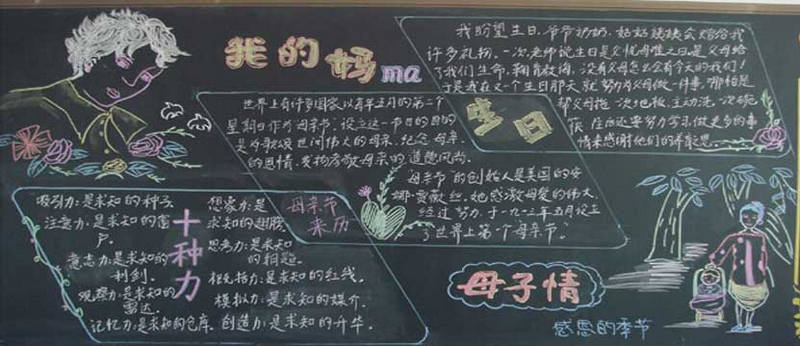 我的妈ma
我盼望生日,爷爷奶奶、姑姑姨姨会给我
许多礼物。一次老师说生日是父忧母难之日,是父母给
了我们生命,养育教诲,没有父母怎么会有今天的我们!
于是我在又一个生日那天就努力为父母做一件事,哪怕是
帮父母拖一次地板,主动洗一次碗
筷,往后还要努力学乐做更多的事
情来感谢他们的养育恩。
生日
世界上有许多国家,以每年五月的第二个
星期日作为母亲节,设立这一节日的目的
是为歌颂世间伟大的母亲,纪念母亲
的恩情,发扬孝敬母亲的道德风尚。
母亲节的创始人是美国的安
娜·贾薇丝,她感激母爱的伟大,
经过努力,于一九一三年五月设立
了世界上第一个母亲节。
母亲节
来历
十种力
吸引力:是求知的种子
注意力:是求知的窗
户。
意志力:是求知的
利剑。
观察力:是求知的
雷达。
记忆力:是求知的仓库。
想象力:是
求知的翅膀
思考力:是求知
的钥匙。
力:是求知的红线。
模拟力:是求知的媒介。
创造力:是求知的升华。
母子情
感恩的季节